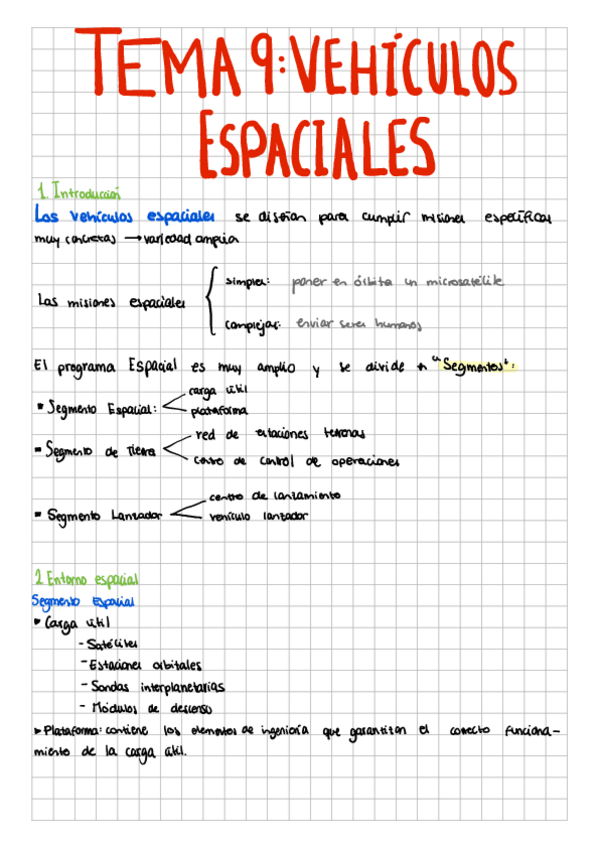 TEMA 9: VEHÍCULOS
ESPACIALES
1. Introducción
Los vehículos espaciales se diseñan para cumplir misiones específicas
muy concretas → variedad amplia
Las misiones espaciales
simples: poner en órbita un microsatélite
complejas: enviar seres humanos
El programa Espacial es muy amplio y se divide en "Segmentos":
▪ Segmento Espacial:
carga útil
plataforma
▪ Segmento de Tierra
red de estaciones terrenas
centro de control de operaciones
▪ Segmento Lanzador
centro de lanzamiento
vehículo lanzador
2. Entorno espacial
Segmento Espacial
▸ Carga útil
- Satélites
- Estaciones orbitales
- Sondas interplanetarias
- Módulos de descenso
▸ Plataforma: contiene los elementos de ingeniería que garantizan el correcto funciona-
miento de la carga útil.